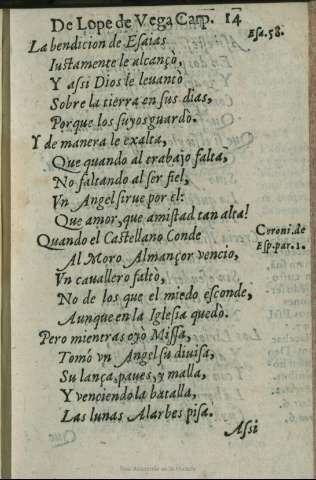 De Lope de Vega Carp. 14
La bendicion de Esaias
Esa. 58.
Iustamente le alcançò,
Y assi Dios le leuantò
Sobre la tierra en sus dias,
Porque los suyos guardò.
Y de manera le exalta,
Que quando al trabajo falta,
No faltando al ser fiel,
Vn Angel sirue por el:
Que amor, que amistad tan alta!
Quando el Castellano Conde
Coroni. de
Esp. par. 1.
Al Moro Almançor vencio,
Vn cauallero faltò,
No de los que el miedo esconde,
Aunque en la Iglesia quedò.
Pero mientras oyò Missa,
Tomò vn Angel su diuisa,
Su lança, paues, y malla,
Y venciendo la batalla,
Las lunas Alarbes pisa.
Assi